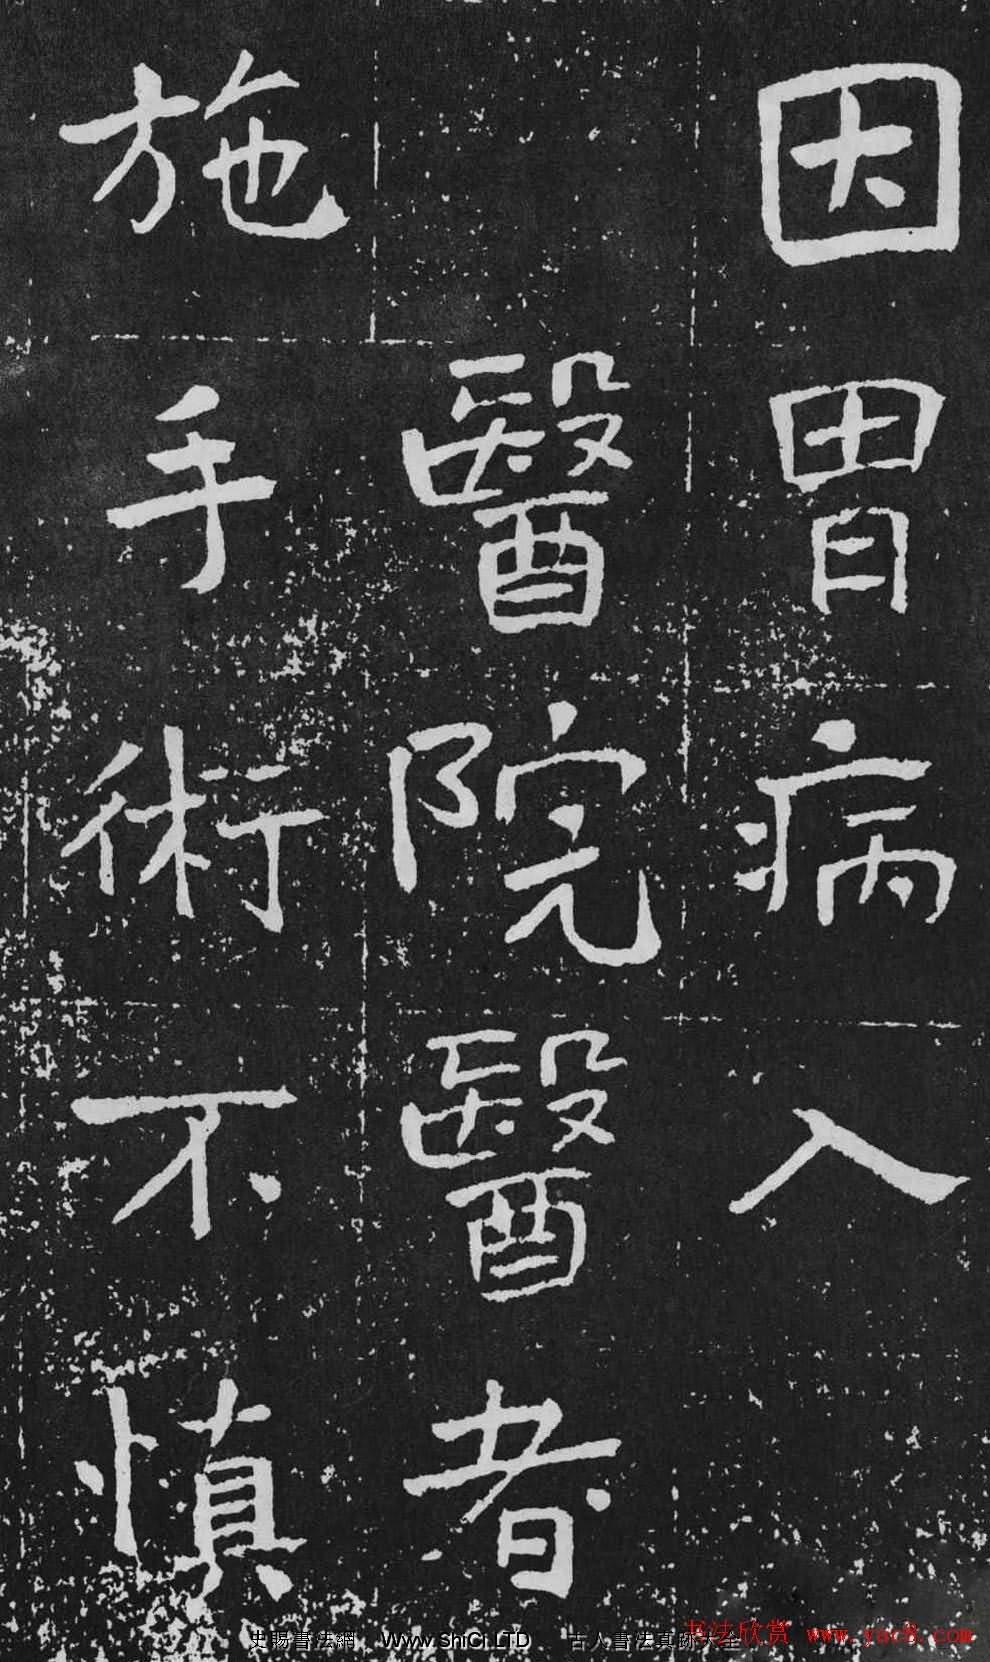 因胃病入
醫院醫者
施手術不慎
史賜書法網 www.ShiCi.LTD 古人書法真跡大全
书法欣赏 www.yac8.com